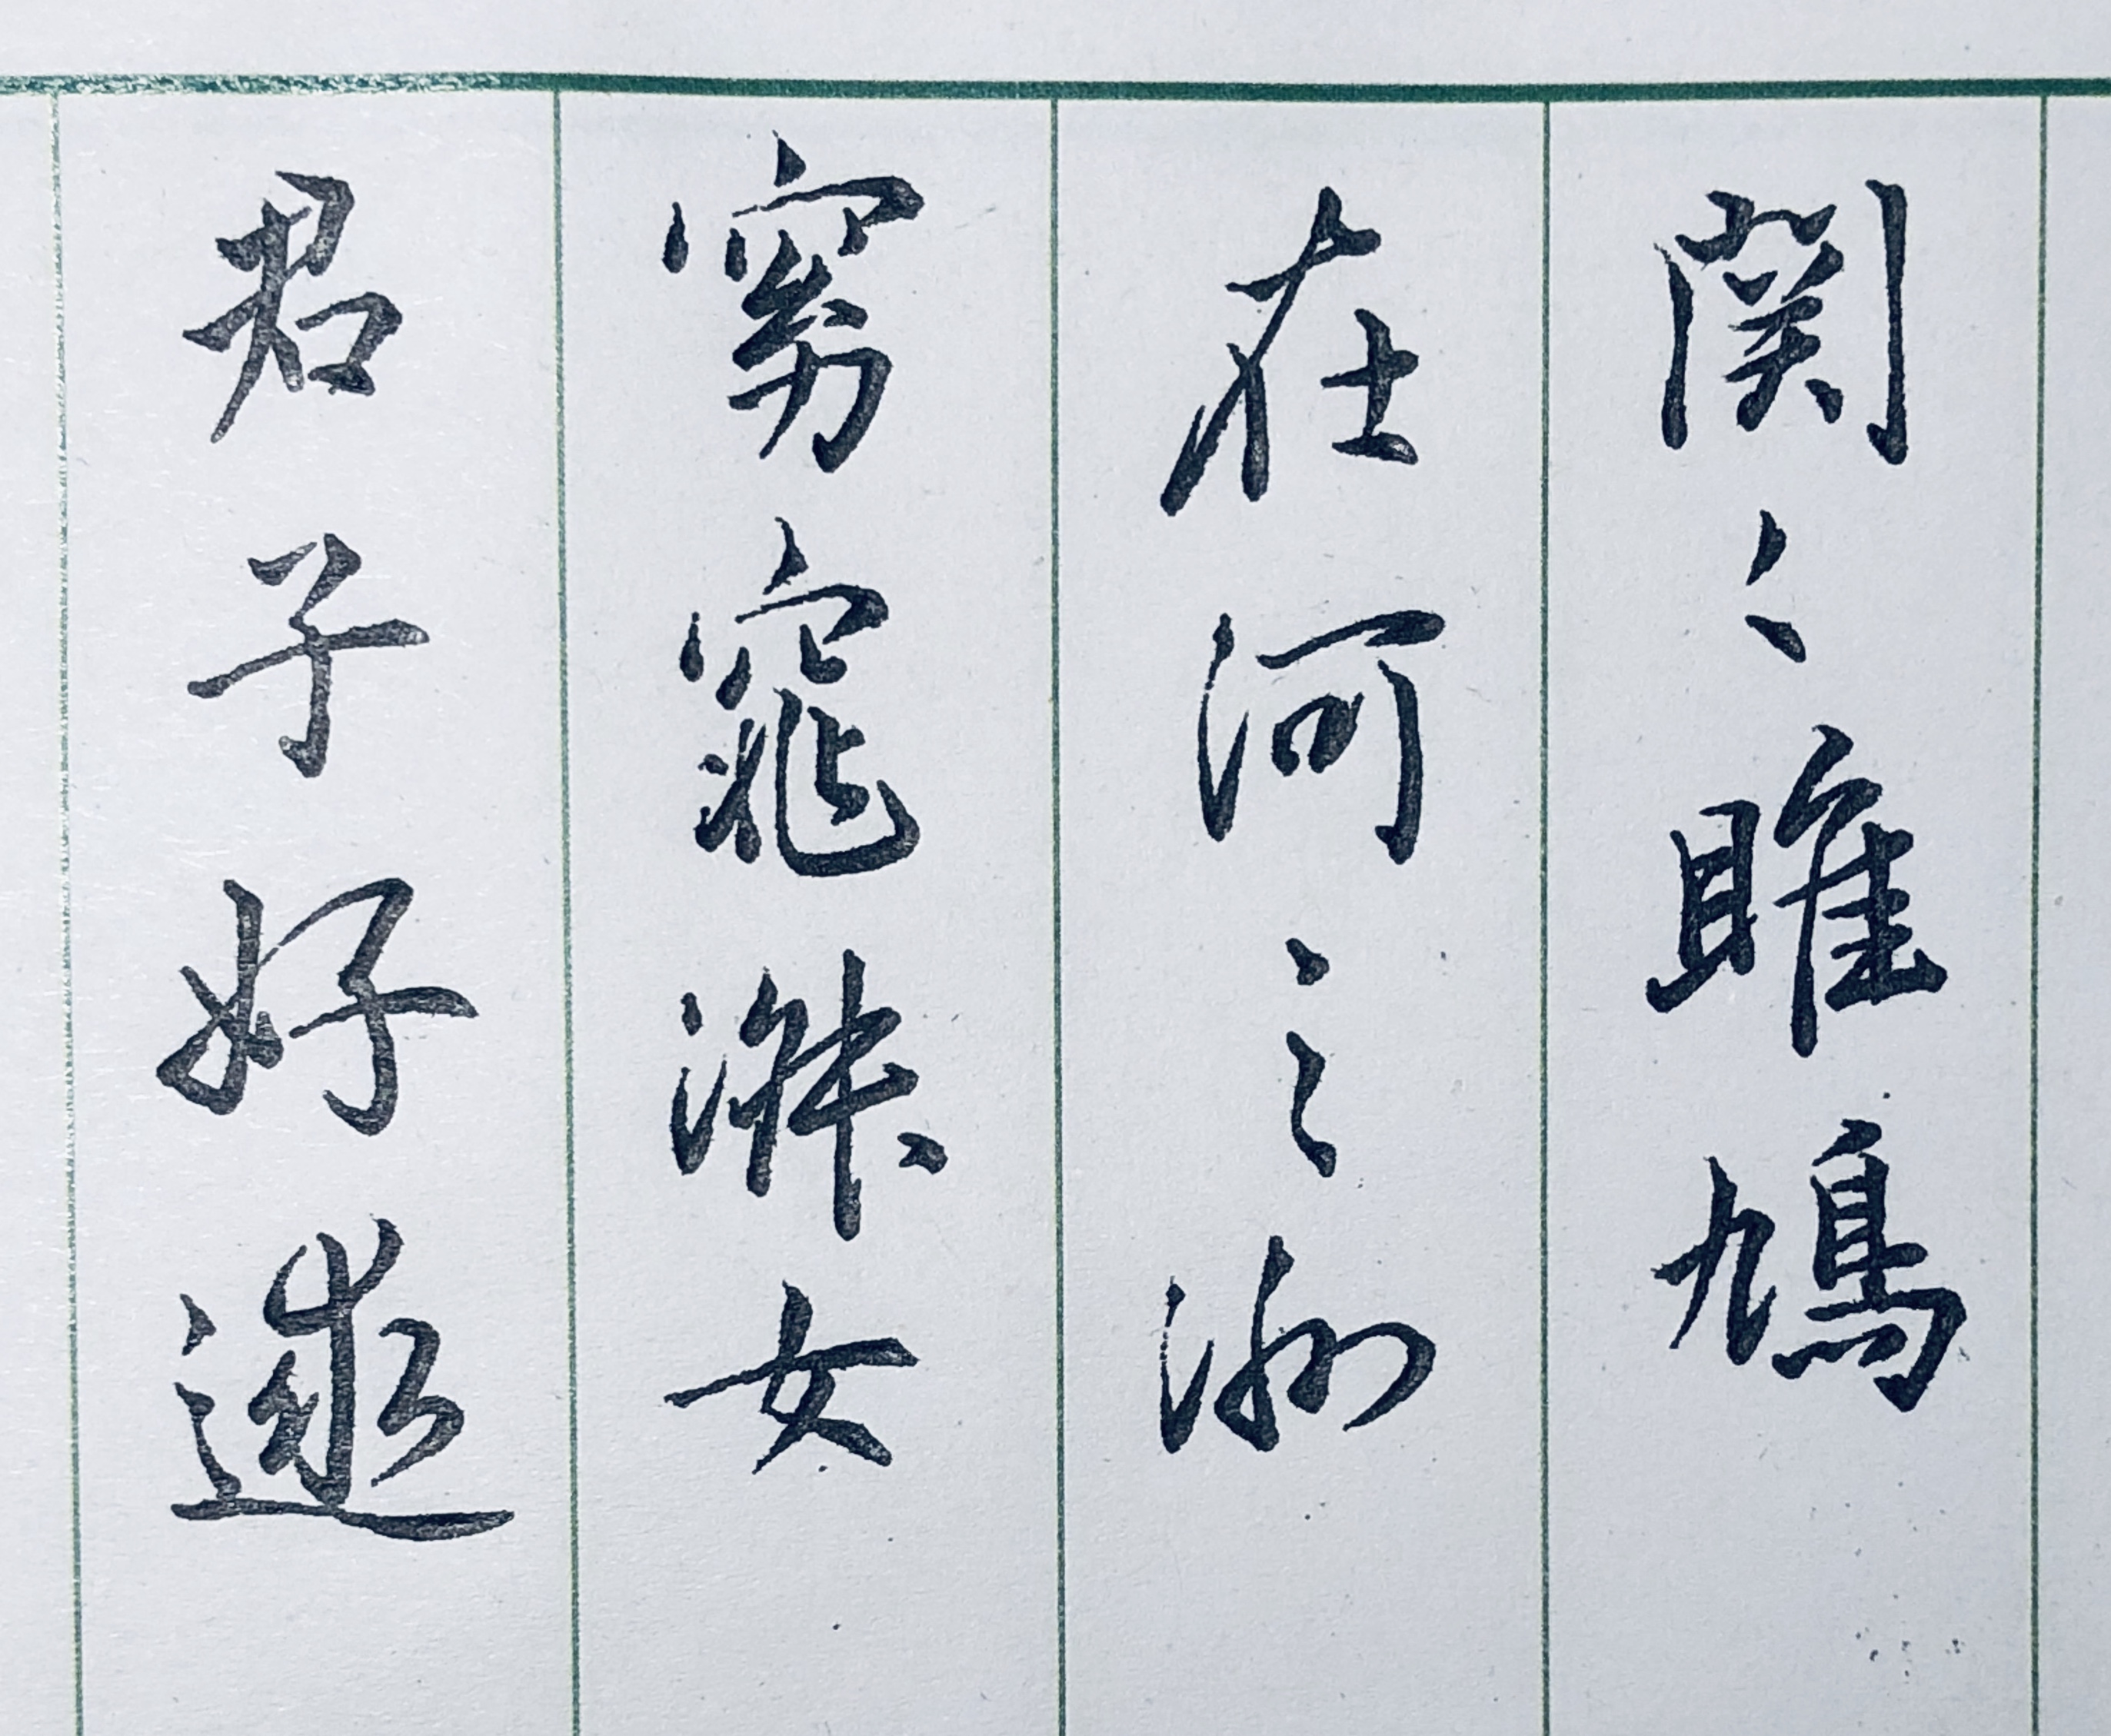 関々雎鳩
在河之洲
窈窕淑女
君子好逑